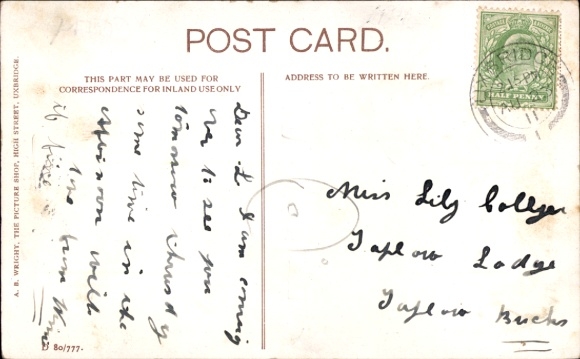 POST CARD.
THIS PART MAY BE USED FOR
CORRESPONDENCE FOR INLAND USE ONLY
ADDRESS TO BE WRITTEN HERE.
HALF PENNY
11
A. R. WRIGHT, THE PICTURE SHOP, HIGH STREET, UXBRIDGE.
Dear L I am coming
over to see you
tomorrow thursdy
some time in the
afternoon with
love from
if fine
Miss Lily Collyer
Taplow Lodge
Taplow Bucks
80/777.